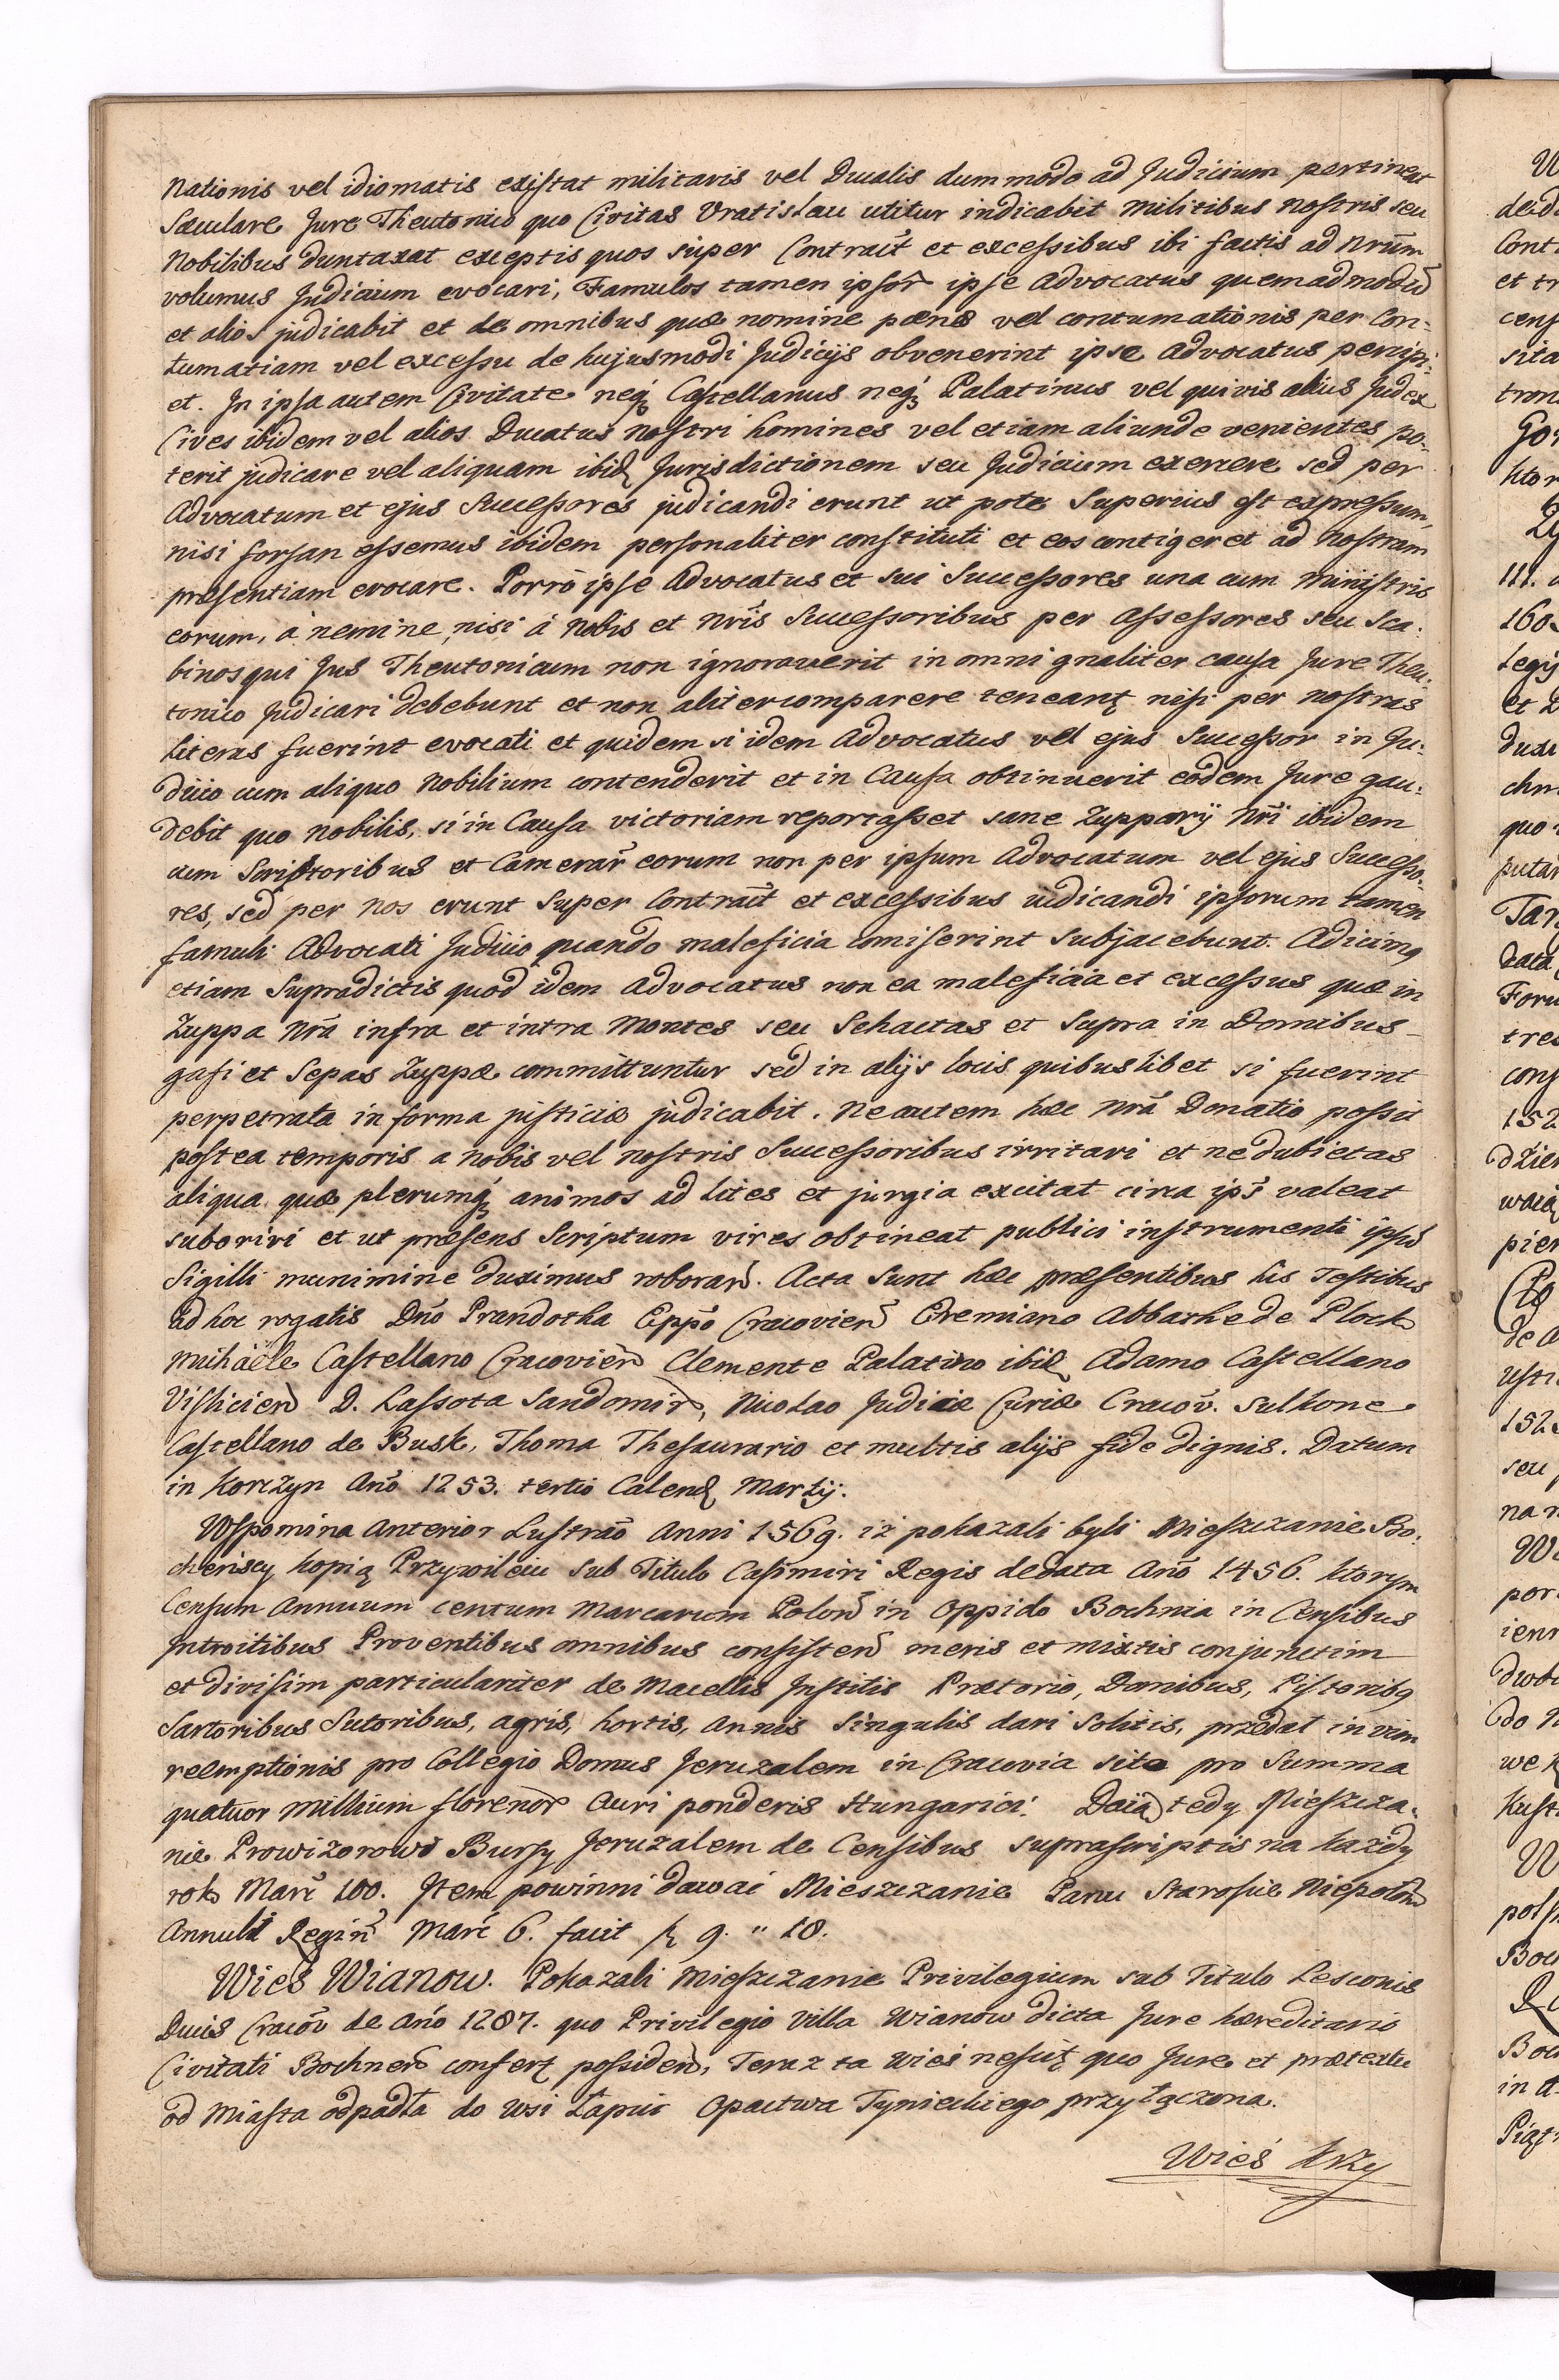 Nationis vel idiomatis existat militaris vel Ducalis dummodo ad Judicium pertineat
Sæculare Jure Theutonico quo Civitas Vratislau utitur indicabit militibus nostris seu
Nobilibus duntaxat exceptis quos super Contract̃ et excessibus ibi factis ad Nrũm
volumus Judicium evocari, Famulos tamen ipsor̃ ipse Advocatus quemadmodũ
et alios judicabit et de omnibus quæ nomine pænæ vel contumationis per Con-
tumatiam vel excessu de hujusmodi Judicijs obvenerint ipse Advocatus percipi-
et. In ipsa autem Civitate neq́ꝫ Castellanus neq́ꝫ Palatinus vel quivis alius Judex
Cives ibidem vel alios Ducatus nostri homines vel etiam aliunde venientes po-
terit judicare vel aliquam ibid Jurisdictionem seu Judicium exercere sed per
Advocatum et ejus Successores judicandi erunt ut pote Superius est expressum,
nisi forsan essemus ibidem personaliter constituti et eos contigeret ad Nostram
præsentiam evocare. Porrò ipse Advocatus et sui Successores una cum Ministris
eorum, à nemine, nisi à Nobis et Nr̃is Successoribus per Assessores seu Sca-
binos qui Jus Theutonicum non ignoraverit in omni gnaliter causa Jure Theu-
tonico Judicari debebunt et non aliter comparere teneant̨ nisi per nostras
literas fuerint evocati et quidem si idem Advocatus vel ejus Successor in Ju-
dicio cum aliquo Nobilium contenderit et in Causa obtinuerit eodem Jure gau-
debit quo Nobilis, si in Causa victoriam reportasset sane Zupparij Nr̃i ibidem
cum Scriptoribus et Camerar̃ eorum non per ipsum Advocatum vel ejus Successo-
res, sed per nos erunt Super Contract̃ et excessibus iudicandi ipsorum tamen
famuli Advocati Judicio quando maleficia comiserint subjacebunt. Adicimq
etiam Supradictis quod idem Advocatus non ea maleficia et excessus quæ in
Zuppa Nr̃a infra et intra Montes seu Schactas et Supra in Domibus
gasi et Sepas Zuppæ committuntur sed in alijs locis quibuslibet si fuerint
perpetrata in forma justiciæ judicabit. Ne autem hæc Nr̃a Donatio possit
postea temporis a Nobis vel nostris Successoribus irritari et ne dubietas
aliqua quæ plerumq́ꝫ animos ad lites et jurgia excitat circa ips̃ valeat
suboriri et ut præsens Scriptum vires obtineat publici instrumenti ipsũ
Sigilli munimine duximus roborañd. Acta Sunt hæc præsentibus his Testibus
ad hoc rogatis Dnõ Prandotha Eppõ Cracovieñ Eremiano Abbathe de Plock
Michaële Castellano Cracovieñ Clemente Palatino ibid Adamo Castellano
Vislicieñ D. Lassota Sandomir̃, Nicolao Judice Curiæ Cracov̄. Sulkone
Castellano de Busk, Thoma Thesaurario et multis alijs fide dignis. Datum
in Korczyn Anõ 1253. tertio Calend Martij.
Wspomina Anterior Lustraõ Anni 1569. iż pokazali byli Mieszczanie Bo-
cheńscy kopią Przywileiu sub Titulo Casimiri Regis de data Anõ 1456. ktorym
Censum Annuum centum Marcarum Poloñ in Oppido Bochnia in Censibus
Introitibus Proventibus omnibus consisteñ meris et mixtis conjunctim
et divisim particulariter de Macellis Institis Prætorio, Domibus, Pistoribq
Sartoribus Sutoribus, agris, hortis, annis singulis dari solitis, przedał in vim
reemptionis pro Collegio Domus Jeruzalem in Cracovia sito pro Summa
quatuor millium florenor̃ Auri ponderis Hungarici. Daią tedy Mieszcza-
nie Prowizorowi Bursy Jeruzalem de Censibus suprascriptis na każdy
rok Marc̃ 100. Item powinni dawać Mieszczanie Panu Staroście Niepolõm
Annuat̃ Regiñ Marc̃ 6. facit ƒ 9. " 18.
Wieś Wianow. Pokazali Mieszczanie Privilegium sub Titulo Lesconis
Ducis Cracov̄ de Anõ 1287. quo Privilegio Villa Wianow dicta Jure hæreditario
Civitati Bochneñ confert̨ possideñd, Teraz ta Wieś nesciт̨ quo Jure et prætextu
od Miasta odpadła do Wsi Łapcic Opactwa Tynieckiego przyłączona.
Wieś Krzy